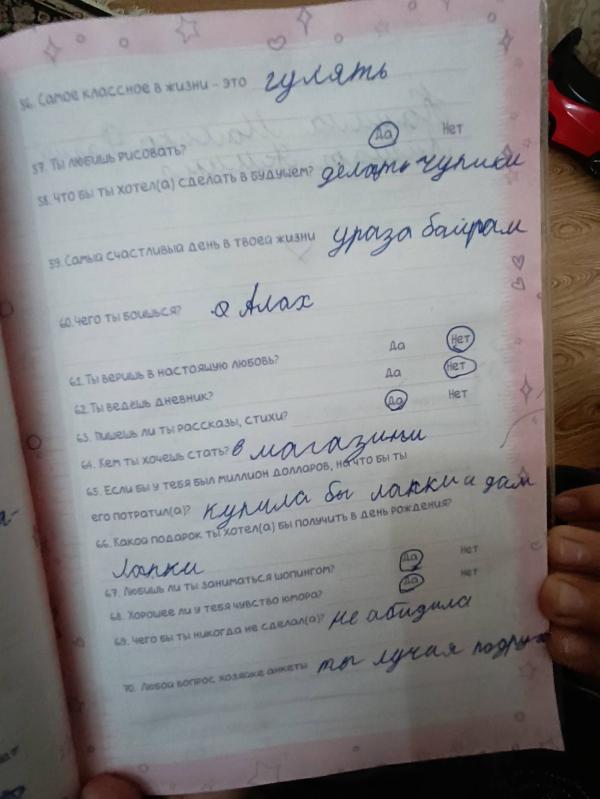 56. Самое классное в жизни - это гулять
57. Ты любишь рисовать? Да Нет
58. Что бы ты хотел(а) сделать в будущем? делать чупики
59. Самый счастливый день в твоей жизни ураза байрам
60. Чего ты боишься? Алах
61. Ты веришь в настоящую любовь? Да Нет
62. Ты ведёшь дневник? Да Нет
63. Пишешь ли ты рассказы, стихи? Да Нет
64. Кем ты хочешь стать? в магазини
65. Если бы у тебя был миллион долларов, на что бы ты
его потратил(а)? купила бы лапки и дам
66. Какой подарок ты хотел(а) бы получить в день рождения?
лапки
67. Любишь ли ты заниматься шопингом? Да Нет
68. Хорошее ли у тебя чувство юмора? Да Нет
69. Чего бы ты никогда не сделал(а)? не абидила
70. Любой вопрос хозяйке анкеты ты лучая подруга